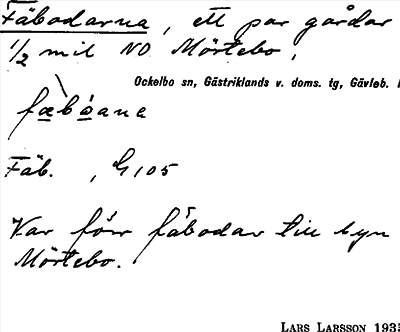 Fäbodarna, ett par gårdar
1/2 mil NO Mörtebo,
Ockelbo sn, Gästriklands v. doms. tg, Gävleb. l
fæbóana
Fäb. , G 105
Var förr fäbodar till byn
Mörtebo.
LARS LARSSON 1935